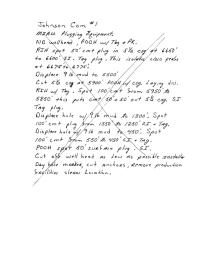 Johnson Com #1
MIRU Plugging Equipment.
ND wellhead, POOH w/ Tbg + PK.
RIH spot 50' cmt plug in 5½ csg at 6650'
to 6600'. SI. Tag plug. This isolates class perfs
at 6675 to 6775'.
Displace 9 lb mud to 5500'
Cut 5½ csg at 5900. POOH w/ csg laying dn.
RIH w/ Tbg. Spot 100' cmt from 5950 to
5850' this puts cmt 50' in & out 5½ csg. SI
Tag plug.
Displace hole w/ 9 lb mud to 1300'. Spot
100' cmt plug from 1350' to 1250' SI + Tag.
Displace hole w/ 9 lb mud to 450'. Spot
100' cmt from 550' to 450' SI + Tag.
POOH spot 50' surface plug. SI.
Cut off well head as low as possible installe
Dry hole marker, cut anchors, Remove production
facilities clean Location.